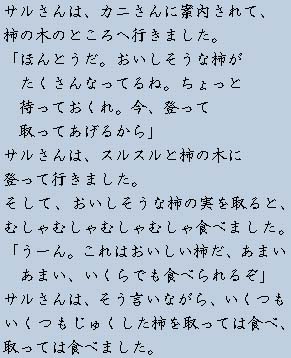 サルさんは、カニさんに案内されて、
柿の木のところへ行きました。
「ほんとうだ。おいしそうな柿が
たくさんなってるね。ちょっと
待っておくれ。今、登って
取ってあげるから」
サルさんは、スルスルと柿の木に
登って行きました。
そして、おいしそうな柿の実を取ると、
むしゃむしゃむしゃむしゃ食べました。
「うーん。これはおいしい柿だ、あまい
あまい、いくらでも食べられるぞ」
サルさんは、そう言いながら、いくつも
いくつもじゅくした柿を取っては食べ、
取っては食べました。